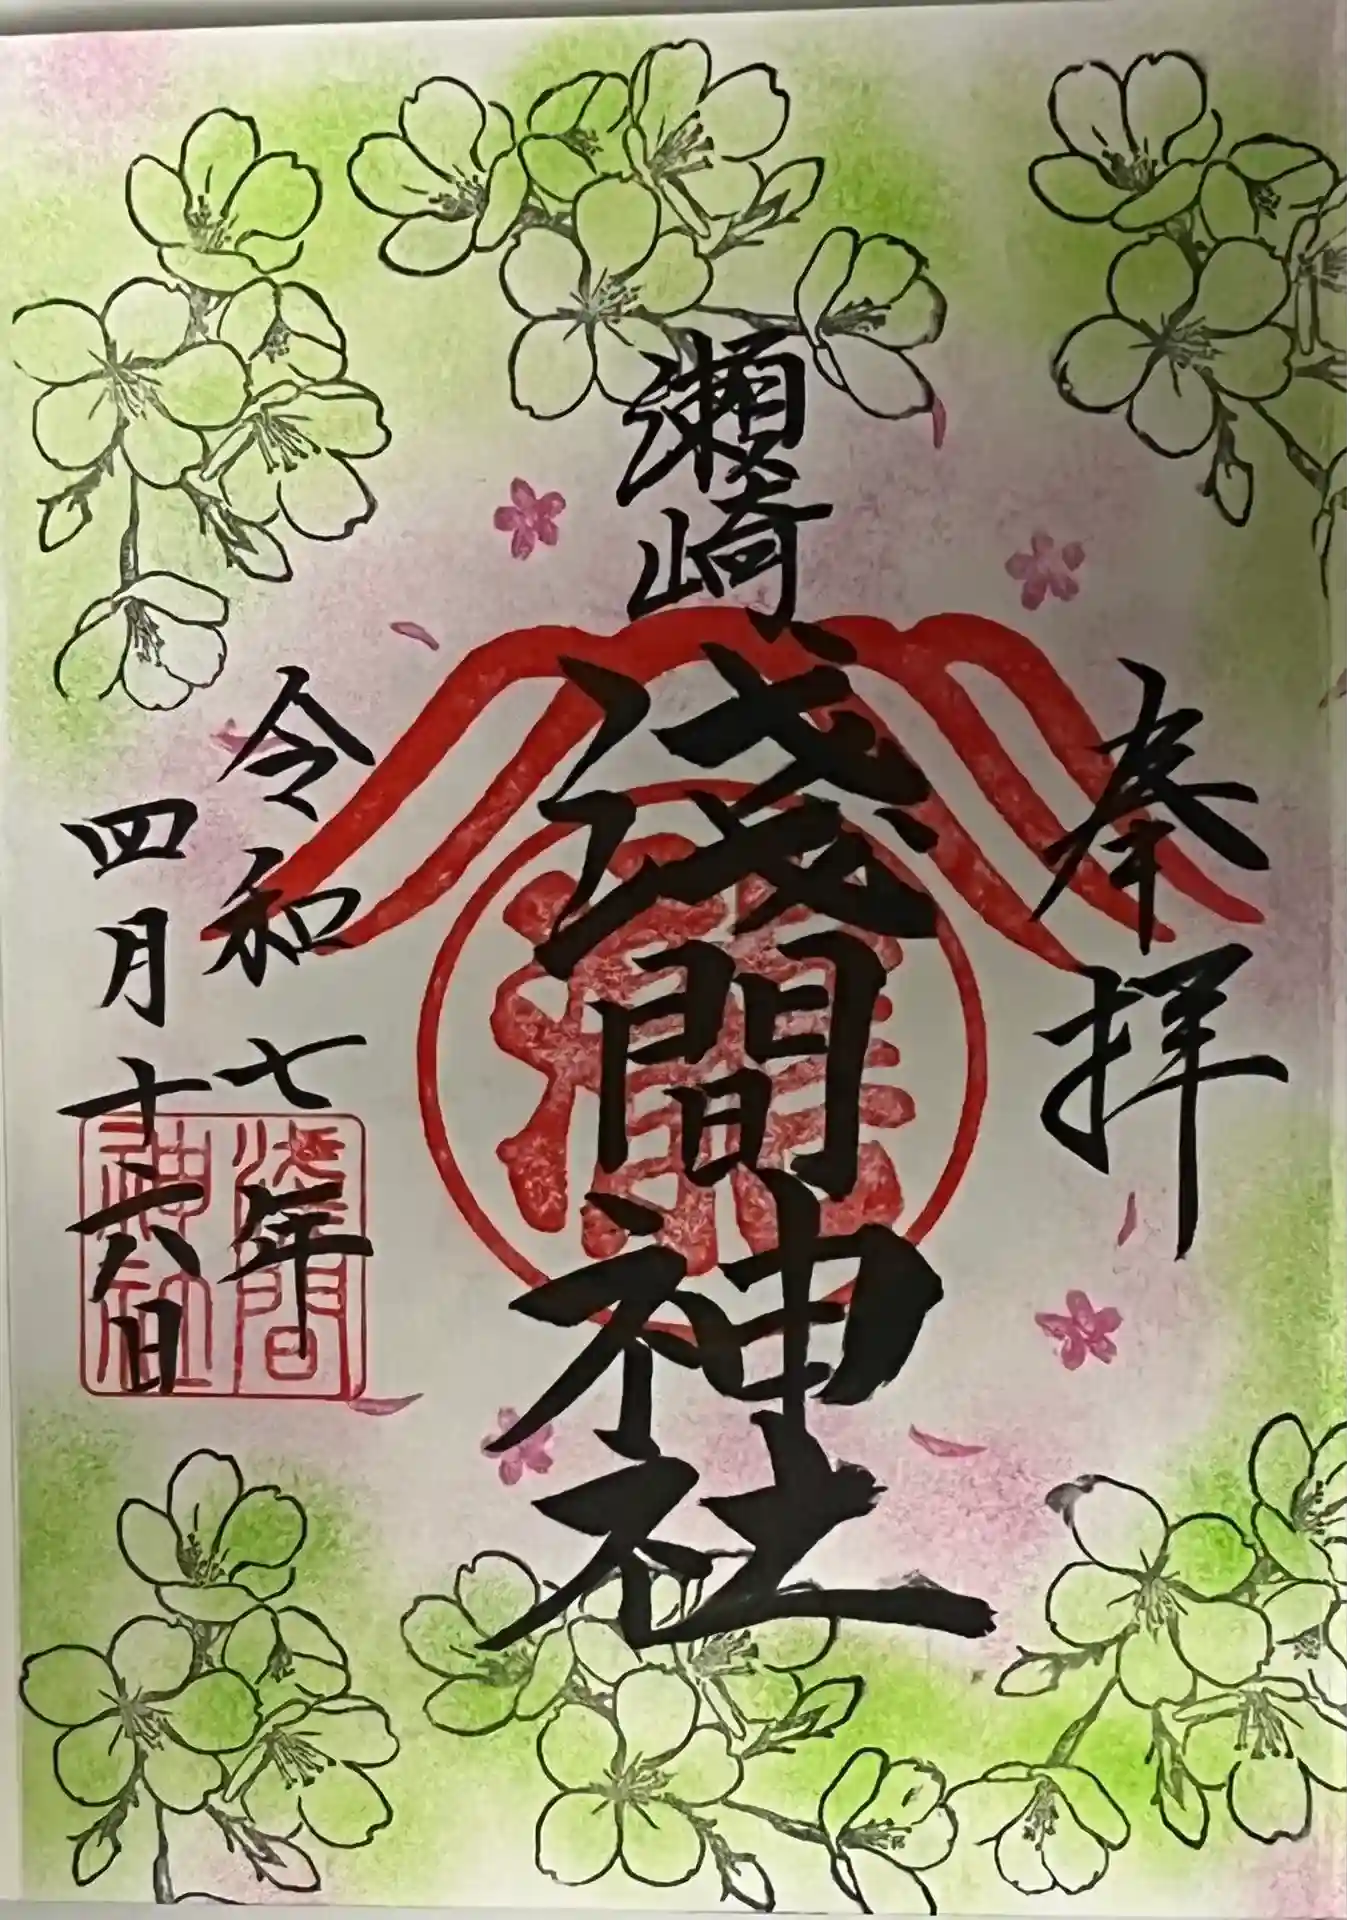 奉拝
瀬崎
淺間神社
令和七年
四月十六日
淺間
神社